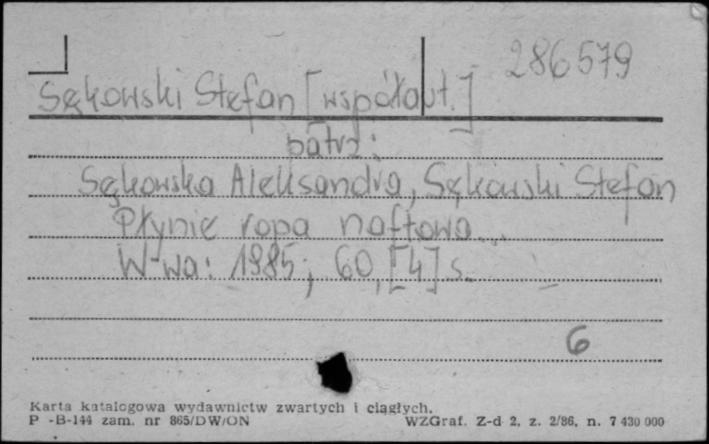 286579
Sękowski Stefan [współaut.]
patrz:
Sękowska Aleksandra, Sękowski Stefan
Płynie ropa naftowa...
W-wa: 1985; 60, [4] s.
6
Karta katalogowa wydawnictw zwartych i ciągłych.
P -B-144 zam. nr 865/DW/ON WZGraf. Z-d 2, z. 2/86, n. 7 430 000